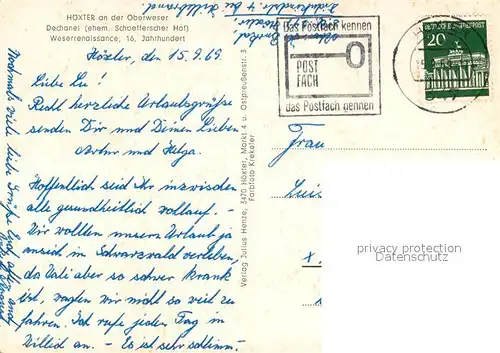 HÖXTER an der Oberweser
Dechanei (ehem. Schaefferscher Hof)
Weserrenaissance, 16. Jahrhundert
Höxter, den 15.9.69
Liebe Lu!
Recht herzliche Urlaubsgrüsse
senden Dir und Deinen Lieben
Artur und Helga.
Hoffentlich seid Ihr inzwischen
alle gesundheitlich vollauf. -
Wir wollten unsern Urlaub ja
an sich im Schwarzwald verleben,
da Vati aber so schwer krank
ist, wagten wir nicht so weit zu
fahren. Ich rufe jeden Tag in
an. - Es ist sehr schlimm. -
Nochmals viele liebe Grüße
Verlag Julius Henze, 3470 Höxter, Markt 4 u. Ostpreußenstr. 3
Farbfoto Krekeler
Das Postfach kennen
POST
FACH
das Postfach nennen
20
DEUTSCHE BUNDESPOST
Frau
privacy protection
watermark